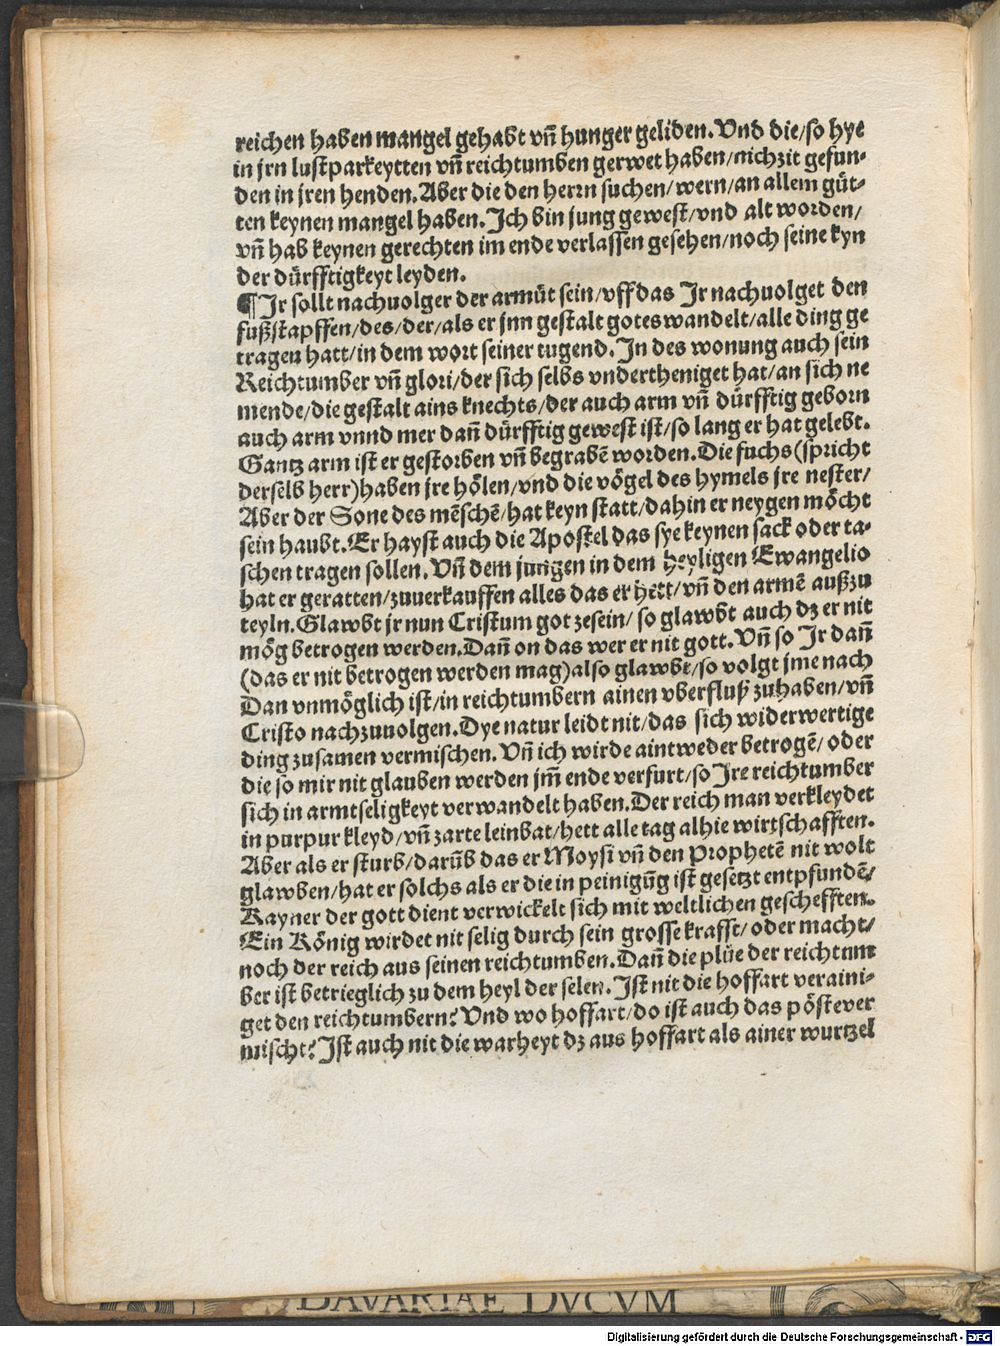 reichen haben mangel gehabt vñ hunger geliden. Vnd die/so hye
in jrn lustparkeytten vñ reichtumben gerwet haben/nichzit gefun-
den in jren henden. Aber die den herrn suchen/wern/an allem güt-
ten keynen mangel haben. Ich bin jung gewest/vnd alt worden/
vñ hab keynen gerechten im ende verlassen gesehen/noch seine kyn
der dürfftigkeyt leyden.
¶ Ir sollt nachuolger der armüt sein/vff das Ir nachuolget den
fußstapffen/des/der/als er jnn gestalt gotes wandelt/alle ding ge
tragen hatt/in dem wort seiner tugend. In des wonung auch sein
Reichtumber vñ glori/der sich selbs vndertheniget hat/an sich ne
mende/die gestalt ains knechts/der auch arm vñ dürfftig geborn
auch arm vnnd mer dañ dürfftig gewest ist/so lang er hat gelebt.
Gantz arm ist er gestorben vñ begrabẽ worden. Die fuchs (spricht
derselb herr) haben jre hölen/vnd die vögel des hymels jre nester/
Aber der Sone des mẽschẽ/hat keyn statt/dahin er neygen möcht
sein haubt. Er hayst auch die Apostel das sye keynen sack oder ta-
schen tragen sollen. Vñ dem jungen in dem heyligen Ewangelio
hat er geratten/zuuerkauffen alles das er hett/vñ den armẽ außzu
teyln. Glawbt jr nun Cristum got zesein/ so glawbt auch dz er nit
mög betrogen werden. Dañ on das wer er nit gott. Vñ so Ir dañ
(das er nit betrogen werden mag) also glawbt/so volgt jme nach
Dan vnmöglich ist/in reichtumbern ainen vberfluß zuhaben/vñ
Cristo nachzuuolgen. Dye natur leidt nit/das sich widerwertige
ding zusamen vermischen. Vñ ich wirde aintweder betrogẽ/ oder
die so mir nit glauben werden jm̃ ende verfurt/so Ire reichtumber
sich in armtseligkeyt verwandelt haben. Der reich man verkleydet
in purpur kleyd/vñ zarte leinbat/hett alle tag alhie wirtschafften.
Aber als er sturb/darũb das er Moysi vñ den Prophetẽ nit wolt
glawben/hat er solchs als er die in peinigũg ist gesetzt entpfundẽ/
Kayner der gott dient verwickelt sich mit weltlichen geschefften.
Ein König wirdet nit selig durch sein grosse krafft/oder macht/
noch der reich aus seinen reichtumben. Dañ die plüe der reichtum
ber ist betrieglich zu dem heyl der selen. Ist nit die hoffart veraini-
get den reichtumbern? Vnd wo hoffart/do ist auch das pöst ever
mischt? Ist auch nit die warheyt dz aus hoffart als ainer wurtzel
BAVARIAE DVCVM
Digitalisierung gefördert durch die Deutsche Forschungsgemeinschaft - DFG